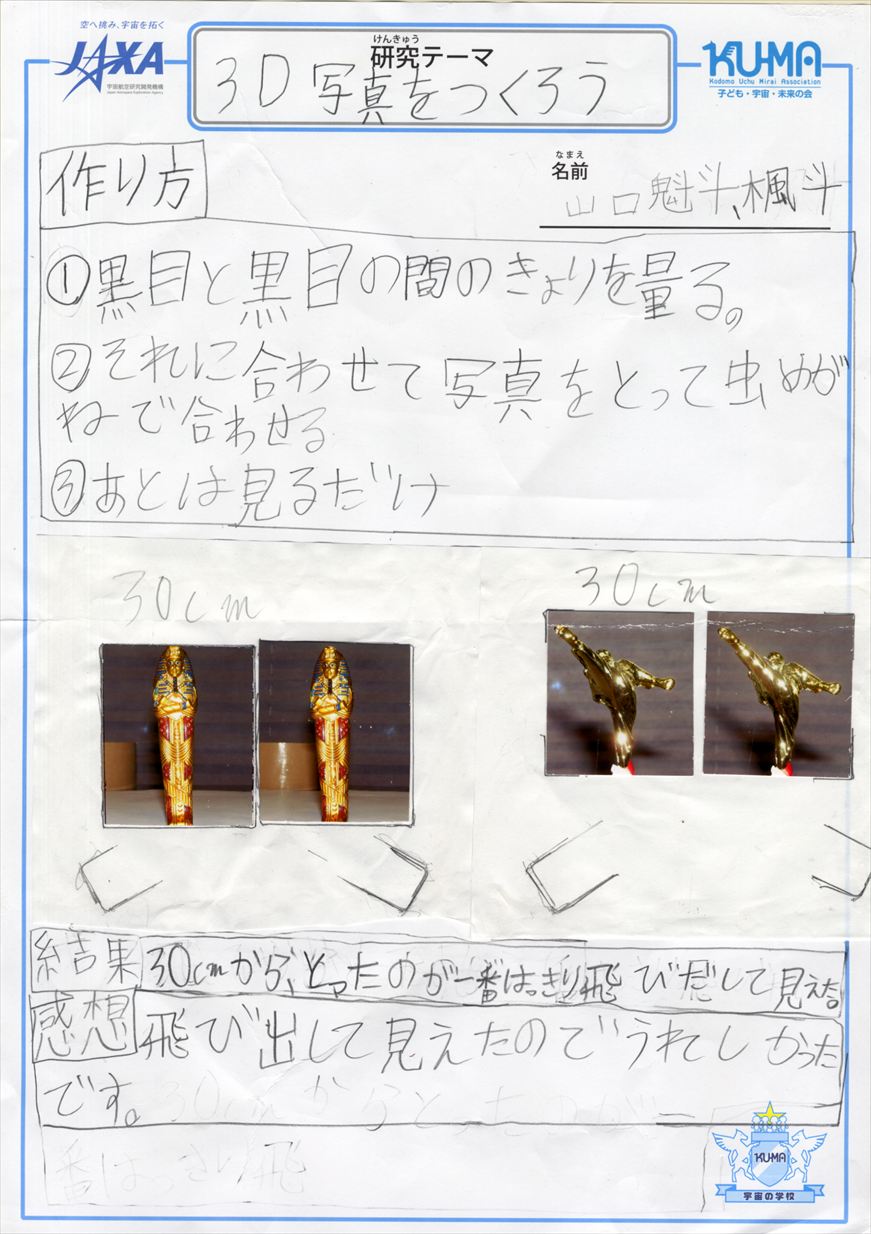 空へ挑み、宇宙を拓く
JAXA
宇宙航空研究開発機構
Japan Aerospace Exploration Agency
けんきゅう
研究テーマ
3D写真をつくろう
KU-MA
Kodomo Uchu Mirai Association
子ども・宇宙・未来の会
作り方
なまえ
名前
山口魁斗、楓斗
①黒目と黒目の間のきょりを量る。
②それに合わせて写真をとって虫めが
ねで合わせる
③あとは見るだけ
30cm
30cm
結果
30cmから、とったのが一番はっきり飛びだして見えた。
感想
飛び出して見えたのでうれしかった
です。
30cmからとったのが一
番はっきり飛
KU-MA
宇宙の学校